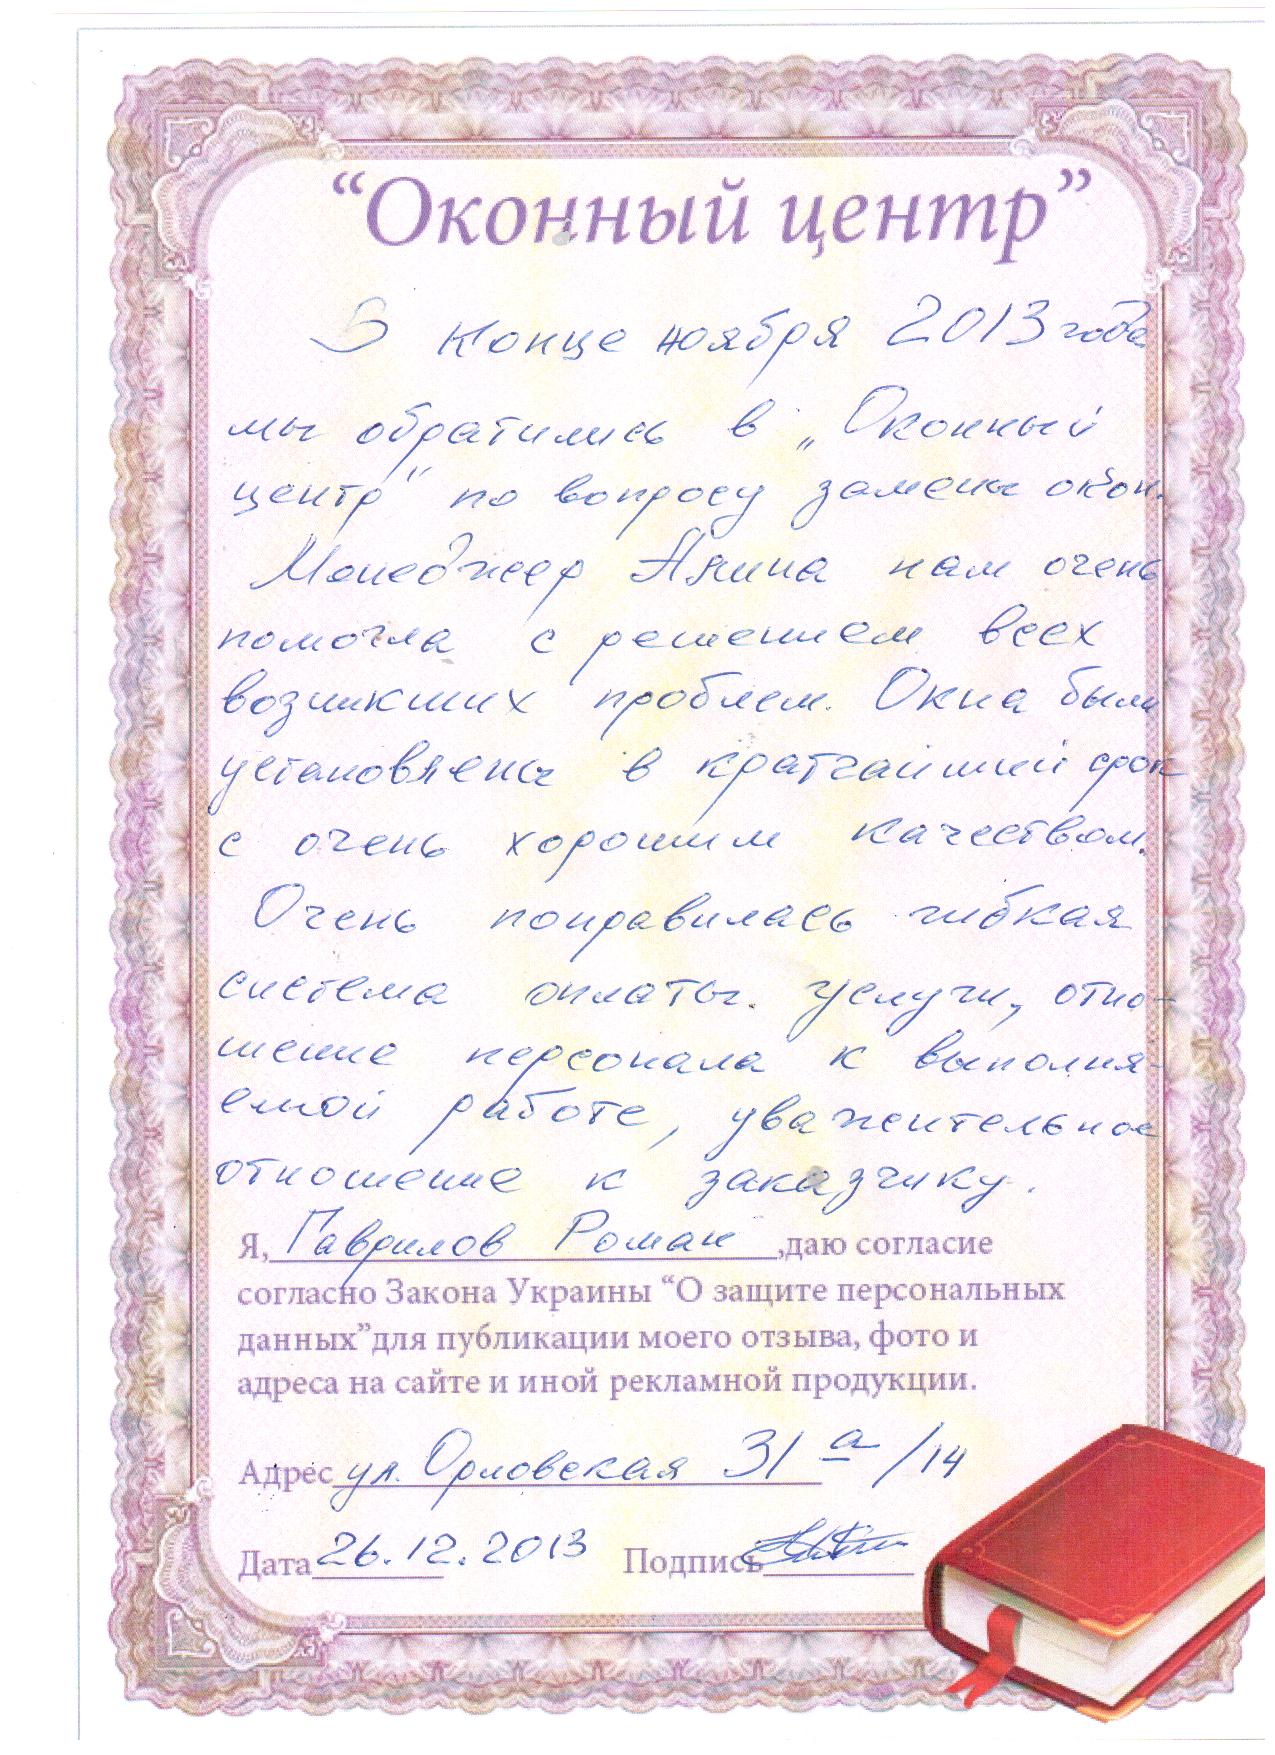 “Оконный центр”
В конце ноября 2013 года
мы обратились в „Оконный
центр" по вопросу замены окон.
Менеджер Алина нам очень
помогла с решением всех
возникших проблем. Окна были
установлены в кратчайший срок
с очень хорошим качеством.
Очень понравилась гибкая
система оплаты услуги, отно-
шение персонала к выполня-
емой работе, уважительное
отношение к заказчику.
Я, Гаврилов Роман ,даю согласие
согласно Закона Украины “О защите персональных
данных”для публикации моего отзыва, фото и
адреса на сайте и иной рекламной продукции.
Адрес ул. Орловская 31 а /14
Дата 26.12.2013 Подпись